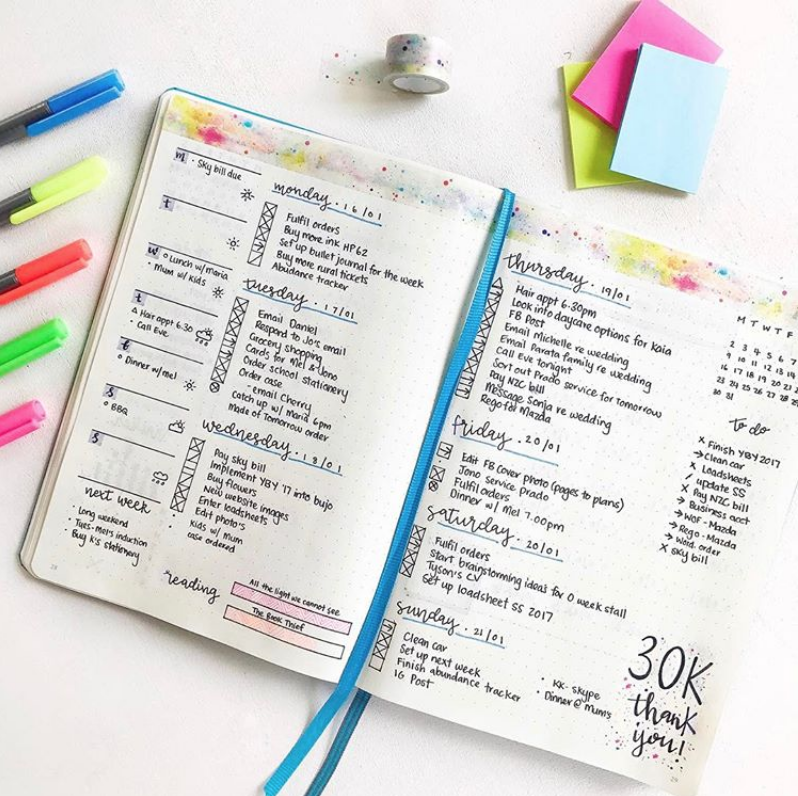 m • Sky bill due
t
w o Lunch w/maria
• Mum w/ Kids
t
△ Hair appt 6.30
• Call Eve
f
o Dinner w/mel
s
o BBQ
s
next week
• Long weekend
• Tues-Mel's induction
• Buy K's stationery
monday • 16/01
Fulfil orders
Buy more ink HP62
Set up bullet journal for the week
Buy more rural tickets
Abundance tracker
tuesday • 17/01
Email Daniel
Respond to Jo's email
Grocery shopping
Cards for Mel & Jono
Order school stationery
Order case
- email Cherry
Catch up w/ Maria 6pm
Made of Tomorrow order
wednesday • 18/01
Pay sky bill
Implement YBY '17 into bujo
Buy flowers
New website images
Enter loadsheets
Edit photo's
• Kids w/ mum
case ordered
reading
All the light we cannot see
The Book Thief
thursday • 19/01
Hair appt 6-30pm
Look into daycare options for Kaia
FB Post
Email Michelle re wedding
Email Parata family re wedding
Call Eve tonight
Sort out Prado service for tomorrow
Pay NZC bill
Message Sonja re wedding
Rego for Mazda
friday • 20/01
Edit FB cover photo (pages to plans)
Jono service Prado
Fulfil orders
Dinner w/ Mel 7.00pm
saturday • 20/01
Fulfil orders
Start brainstorming ideas for O week stall
Tyson's CV
Set up loadsheet SS 2017
sunday • 21/01
Clean car
Set up next week
Finish abundance tracker
IG Post
• KK- skype
• Dinner @ mum's
M T W T F
2 3 4 5 6 7
9 10 11 12 13
16 17 18 19 20 21
23 24 25 26 27 28
30 31
To do
x Finish YBY 2017
→ Clean car
x Loadsheets
/ update SS
x Pay NZC bill
→ Business acct
→ WOF - Mazda
→ Rego - Mazda
→ Word. order
x sky bill
30K
thank
you!